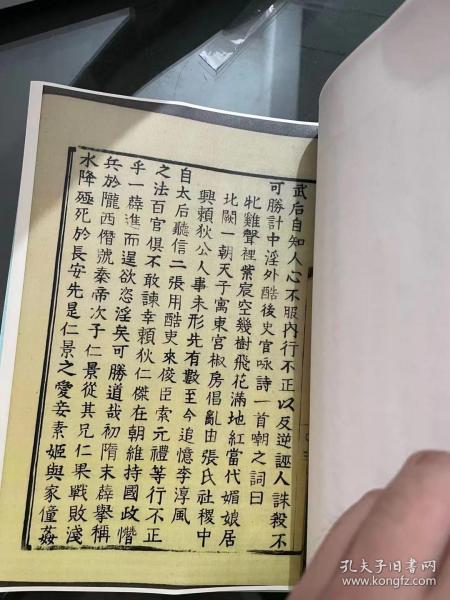 武后自知人心不服內行不正以反逆誣人誅殺不
可勝計中淫外酷後史官咏詩一首嘲之詞曰
牝雞聲裡紫宸空幾樹飛花滿地紅當代媚娘居
北闕一朝天子寓東宮椒房倡亂由張氏社稷中
興賴狄公人事未形先有數至今追憶李淳風
自太后聽信二張用酷吏來俊臣索元禮等行不正
之法百官俱不敢諫幸賴狄仁傑在朝維持國政懵
乎一薛進而逞欲恣淫矣可勝道哉初隋末薛擧稱
兵於隴西僭號秦帝次子仁景從其兄仁果戰敗淺
水降殛死於長安先是仁景之愛妾素姬與家僮姦
孔夫子旧书网
www.kongfz.com